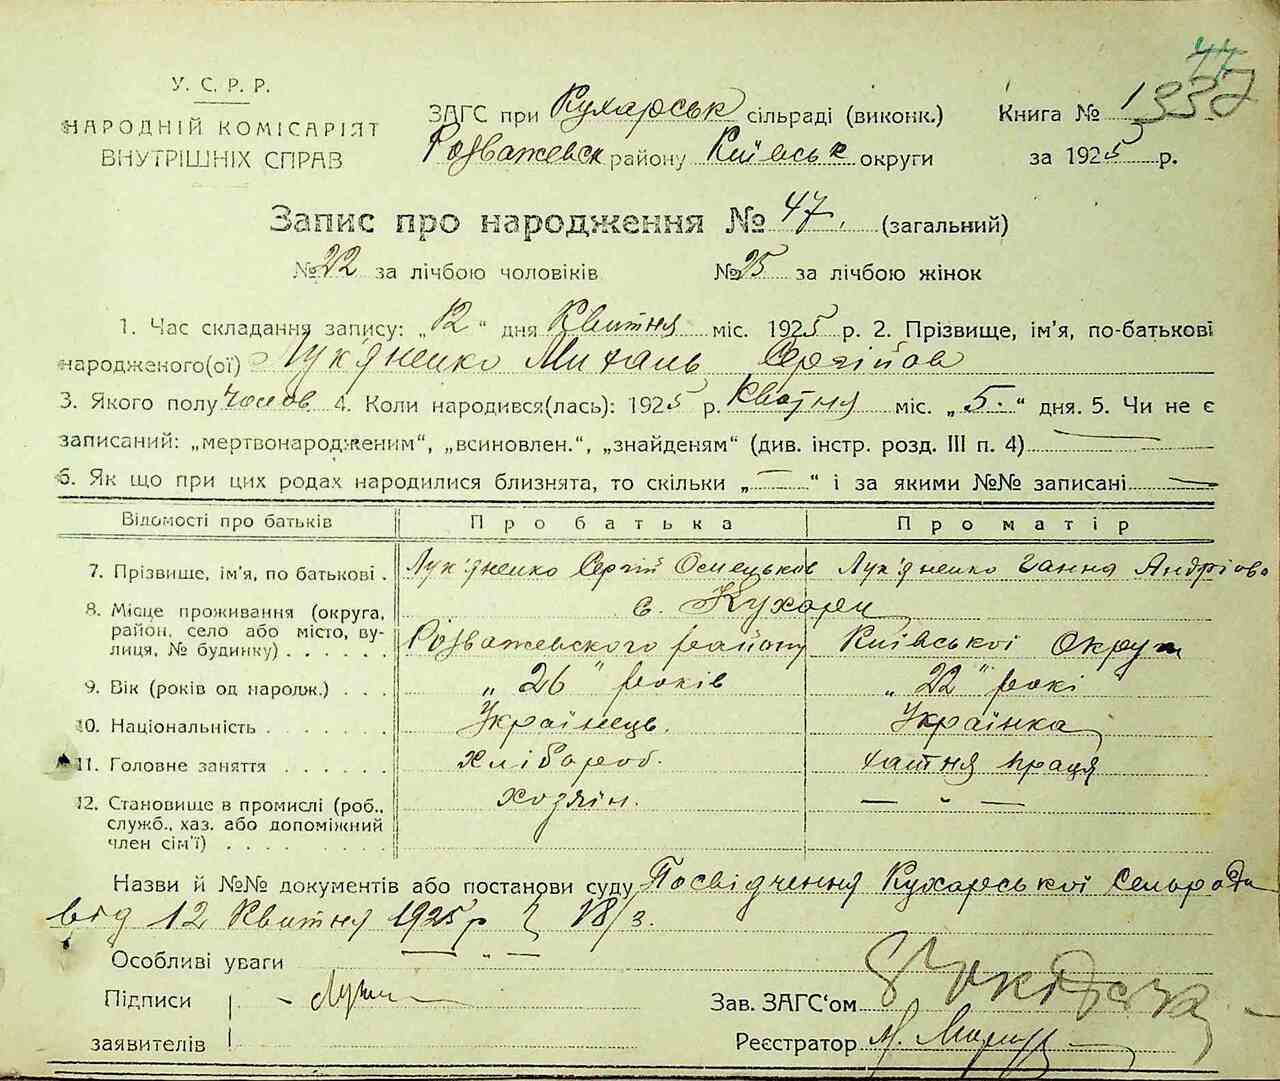 77
337
У. С. Р. Р.
НАРОДНІЙ КОМІСАРІЯТ
ВНУТРІШНІХ СПРАВ
ЗАГС при Кухарськ сільраді (виконк.)
Розважевск району Київськ округи
Книга № 1
за 1925 р.
Запис про народження № 47. (загальний)
№ 22 за лічбою чоловіків № 25 за лічбою жінок
1. Час складання запису: „12" дня Квитня міс. 1925 р. 2. Прізвище, ім'я, по-батькові
народженого(ої) Лук'яненко Михаль Сергійов
3. Якого полу Чолов 4. Коли народився(лась): 1925 р. Квотня міс. „5." дня. 5. Чи не є
записаний: „мертвонародженим", „всиновлен.", „знайденям" (див. інстр. розд. III п. 4)
6. Як що при цих родах народилися близнята, то скільки „—" і за якими №№ записані —
Відомості про батьків Про батька Про матір
7. Прізвище, ім'я, по батькові . Лук'яненко Сергій Лук'яненко Ганна Андріова
8. Місце проживання (округа, район, село або місто, вулиця, № будинку) . . . . . . с. Кухари
Розважевского району Київської Округи
9. Вік (років од народж.) . . . „26" років „22" рокі
10. Національність . . . . . . Українець. Українка
11. Головне заняття . . . . . . хлібороб. хатня праця
12. Становище в промислі (роб., служб., хаз. або допоміжний член сім'ї) . . . . . . . . хозяін. — " —
Назви й №№ документів або постанови суду Посвідчення Кухарської Сельради
від 12 Квитня 1925 р 18/3.
Особливі уваги — " —
Підписи
заявителів
Зав. ЗАГС'ом
Реєстратор М.